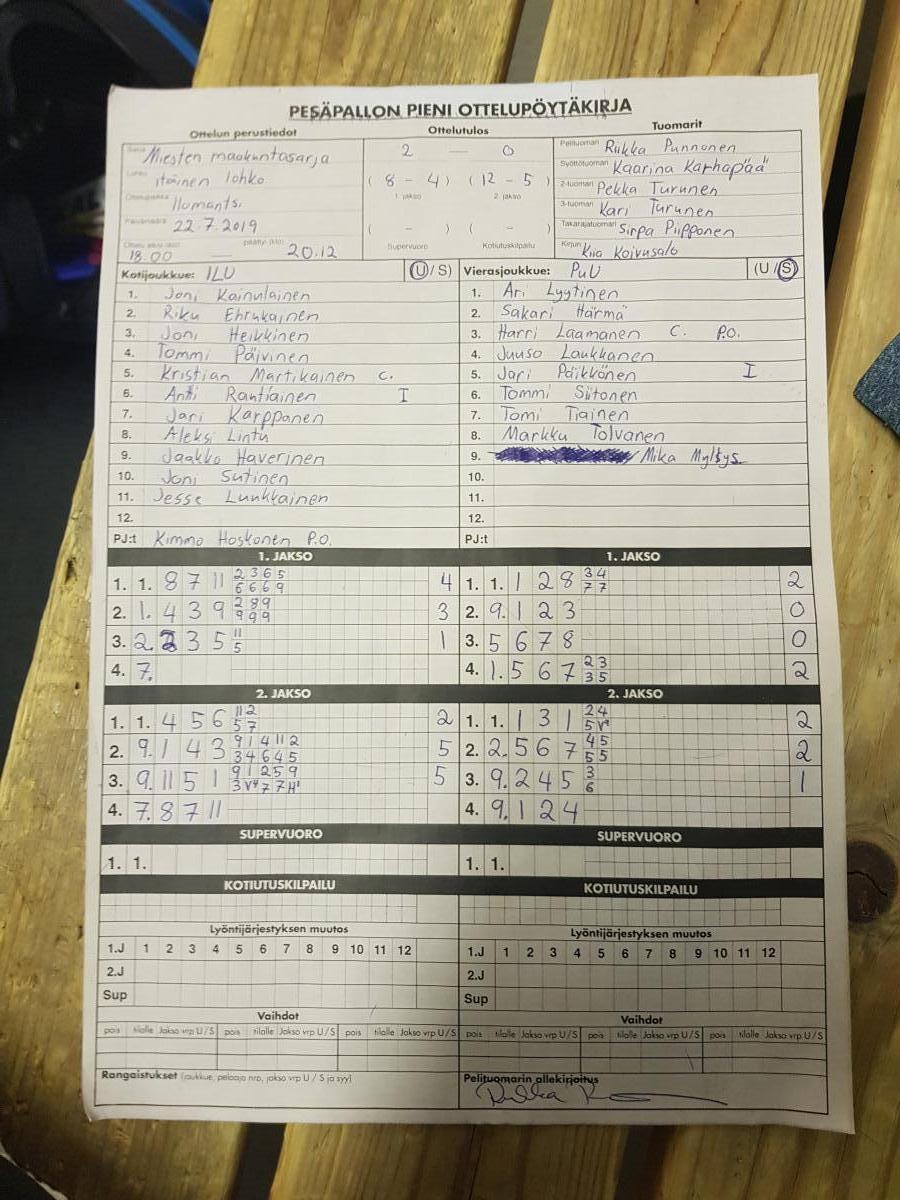 PESÄPALLON PIENI OTTELUPÖYTÄKIRJA
Ottelun perustiedot Ottelutulos Tuomarit
Sarja Miesten maakuntasarja 2 — 0 Pelituomari Riikka Punnonen
Lohko itäinen lohko ( 8 - 4 ) ( 12 - 5 ) Syöttötuomari Kaarina Karhapää
1. jakso 2. jakso
Ottelupaikka Ilomantsi 2-tuomari Pekka Turunen
Päivämäärä 22.7.2019 ( - ) ( - ) 3-tuomari Kari Turunen
Supervuoro Kotiutuskilpailu Takarajatuomari Sirpa Piipponen
Ottelu alkoi (klo) 18.00 — päättyi (klo) 20.12 Kirjuri Kiia Koivusalo
Kotijoukkue: ILU (U / S) Vierasjoukkue: PuU (U / S)
1. Joni Kainulainen 1. Ari Lyytinen
2. Riku Ehrukainen 2. Sakari Härmä
3. Joni Heikkinen 3. Harri Laamanen C. P.O.
4. Tommi Päivinen 4. Juuso Laukkanen
5. Kristian Martikainen C. 5. Jari Päikkönen I
6. Antti Rantiainen I 6. Tommi Siitonen
7. Jari Karppanen 7. Tomi Tiainen
8. Aleksi Lintu 8. Markku Tolvanen
9. Jaakko Haverinen 9. / Mika Myllys
10. Joni Sutinen 10.
11. Jesse Luukkainen 11.
12. 12.
PJ:t Kimmo Hoskonen P.O. PJ:t
1. JAKSO 1. JAKSO
1. 1. 8 7 11 2 3 6 5 4 1. 1. 1 2 8 3 4 2
6 6 6 9 7 7
2. 1. 4 3 9 2 8 9 3 2. 9. 1 2 3 0
9 9 9
3. 2. 2 3 5 11 1 3. 5 6 7 8 0
5
4. 7. 4. 1. 5 6 7 2 3 2
3 5
2. JAKSO 2. JAKSO
1. 1. 4 5 6 11 2 2 1. 1. 1 3 1 2 4 2
5 7 5 V
2. 9. 1 4 3 9 1 4 11 2 5 2. 2. 5 6 7 4 5 2
3 4 6 4 5 5 5
3. 9. 11 5 1 9 1 2 5 9 5 3. 9. 2 4 5 3 1
3 V 7 7 H 6
4. 7. 8 7 11 4. 9. 1 2 4
SUPERVUORO SUPERVUORO
1. 1. 1. 1.
KOTIUTUSKILPAILU KOTIUTUSKILPAILU
Lyöntijärjestyksen muutos Lyöntijärjestyksen muutos
1.J 1 2 3 4 5 6 7 8 9 10 11 12 1.J 1 2 3 4 5 6 7 8 9 10 11 12
2.J 2.J
Sup Sup
Vaihdot Vaihdot
pois tilalle Jakso vrp U / S pois tilalle Jakso vrp U / S pois tilalle Jakso vrp U / S pois tilalle Jakso vrp U / S pois tilalle Jakso vrp U / S pois tilalle Jakso vrp U / S
Rangaistukset (joukkue, pelaaja nro, jakso vrp U / S ja syy) Pelituomarin allekirjoitus